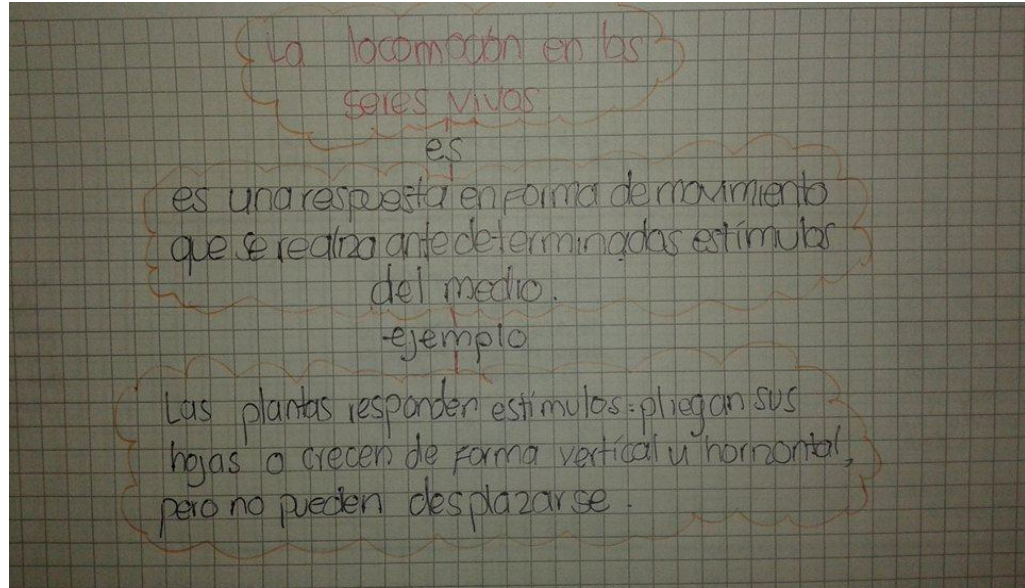 La locomoción en los
seres vivos
es
es una respuesta en forma de movimiento
que se realiza ante determinadas estímulos
del medio.
ejemplo
Las plantas responden estímulos: pliegan sus
hojas o crecen de forma vertical u horizontal,
pero no pueden desplazarse.